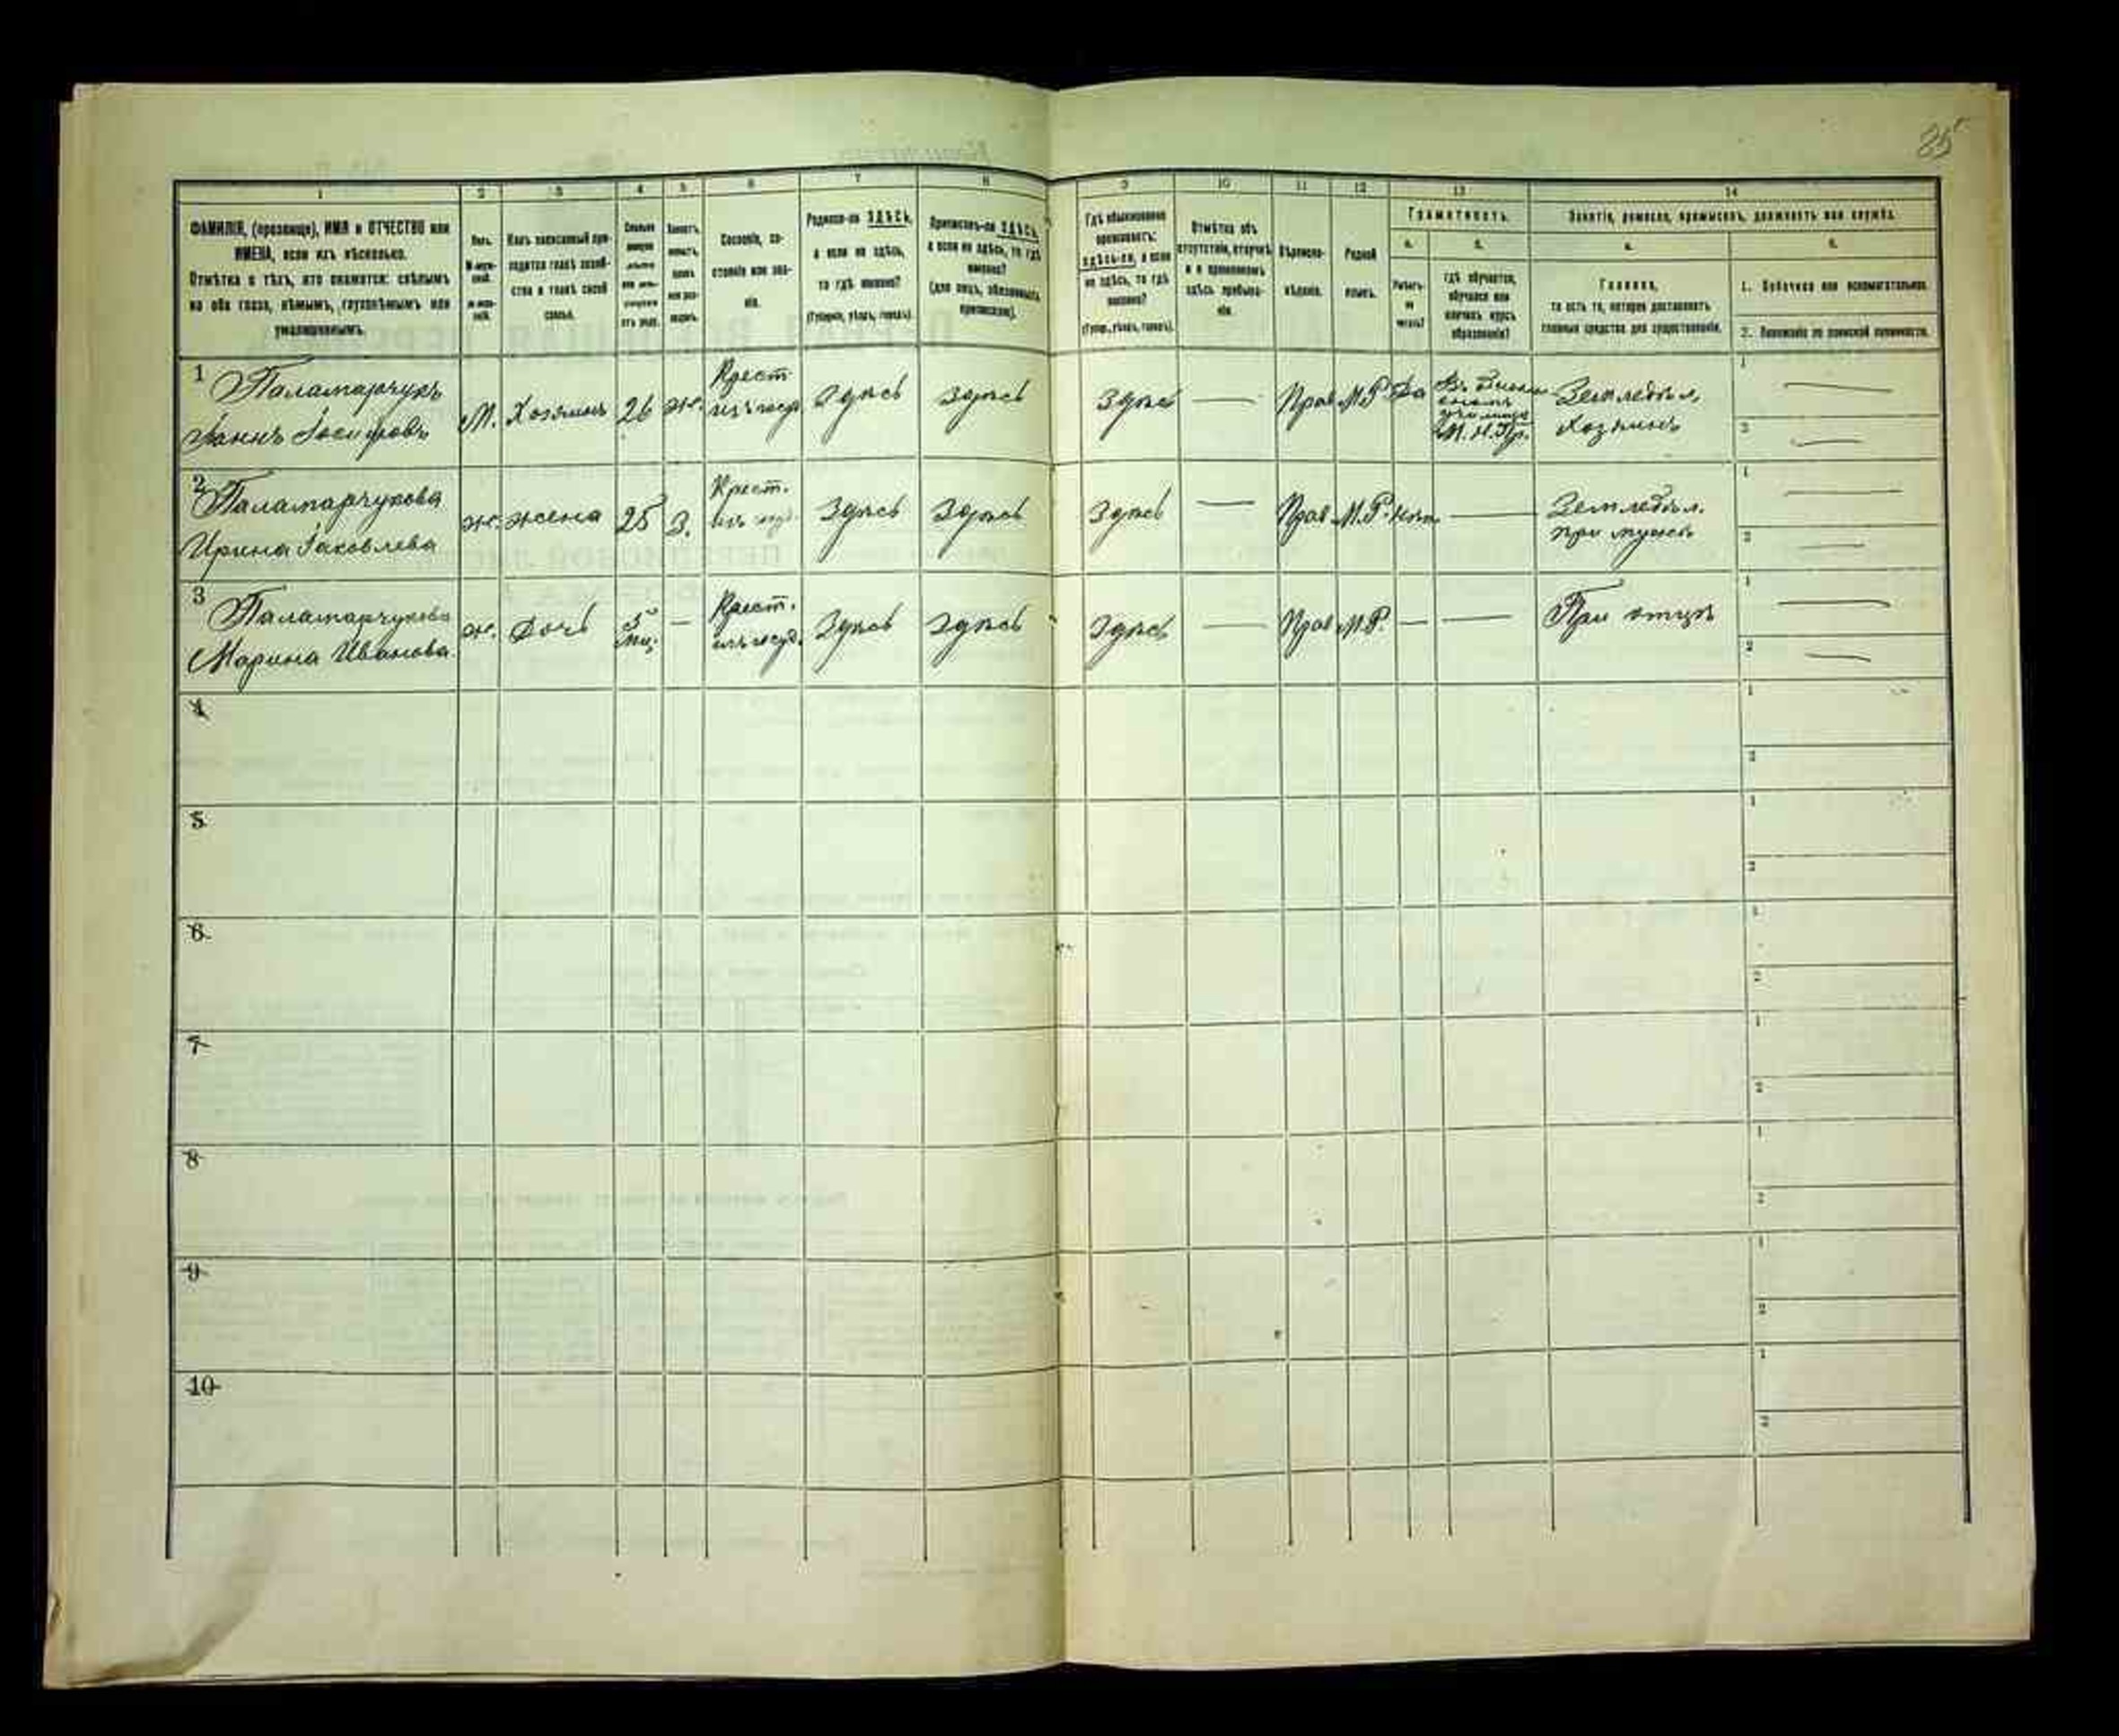 85
1 2 3 4 5 6 7 8 9 10 11 12 13 14
ФАМИЛІЯ, (прозвище), ИМЯ и ОТЧЕСТВО или
ИМЕНА, если ихъ нѣсколько.
Отмѣтка о тѣхъ, кто окажется: слѣпымъ
на оба глаза, нѣмымъ, глухонѣмымъ или
умалишеннымъ.
Полъ.
М-муж-
ской.
Ж-жен-
скій.
Какъ записанный при-
ходится главѣ хозяй-
ства и главѣ своей
семьи.
Сколько
минуло
лѣтъ
или мѣ-
сяцевъ
отъ роду.
Холостъ,
женатъ,
вдовъ
или раз-
веденъ.
Сословіе, со-
стояніе или зва-
ніе.
Родился-ли ЗДѢСЬ,
а если не здѣсь,
то гдѣ именно?
(Губернія, уѣздъ, городъ).
Приписанъ-ли ЗДѢСЬ,
а если не здѣсь, то гдѣ
именно?
(для лицъ, обязанныхъ
припискою).
Гдѣ обыкновенно
проживаетъ:
здѣсь-ли, а если
не здѣсь, то гдѣ
именно?
(Губер., уѣздъ, городъ).
Отмѣтка объ
отсутствіи, отлучкѣ
и о временномъ
здѣсь пребыва-
ніи.
Вѣроиспо-
вѣданіе.
Родной
языкъ.
Грамотность.
а.
Умѣетъ-
ли
читать?
б.
гдѣ обучается,
обучался или
кончилъ курсъ
образованія?
Занятіе, ремесло, промыселъ, должность или служба.
а.
Главное,
то есть то, которое доставляетъ
главныя средства для существованія.
б.
1. Побочное или вспомогательное.
2. Положеніе по воинской повинности.
1 Паламарчукъ
Іоаннъ Іосифовъ
М. Хозяинъ 26 ж.
Крест.
изъ госуд.
Здѣсь Здѣсь Здѣсь — Прав М.Р. Да
М.Н.Пр.
Земледѣл.
Хозяинъ
1 —
2 —
2 Паламарчукова
Ирина Іаковлева
ж. жена 25 З.
Крест.
изъ госуд.
Здѣсь Здѣсь Здѣсь — Прав М.Р. нѣт —
Земледѣл.
при мужѣ
1 —
2 —
3 Паламарчукова
Марина Иванова
ж. Дочь 5 —
Крест.
изъ госуд.
Здѣсь Здѣсь Здѣсь — Прав М.Р. — —
При отцѣ
1 —
2 —
4
1
2
5
1
2
6
1
2
7
1
2
8
1
2
9
1
2
10
1
2